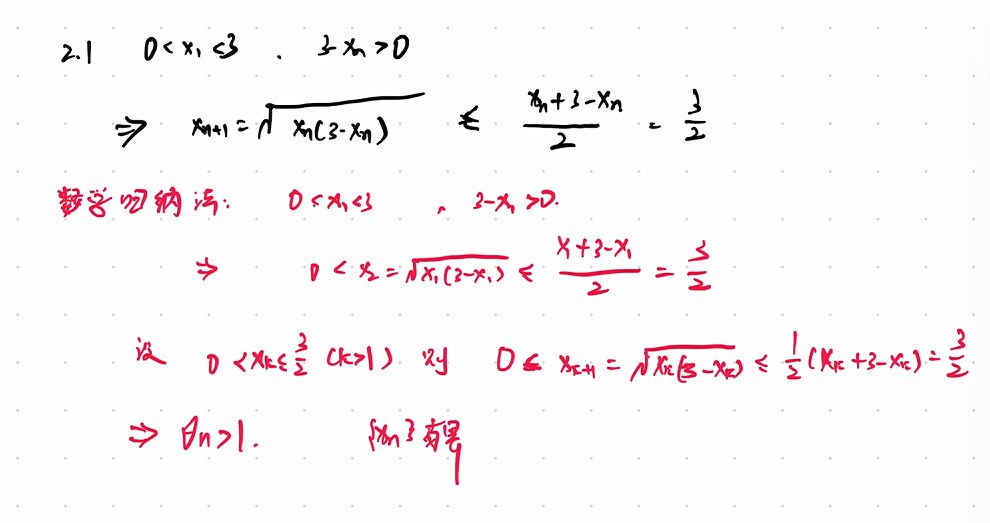 2.1 0<x₁<3 . 3-xₙ>0
⇒ xₙ₊₁=√(xₙ(3-xₙ)) ≤ (xₙ+3-xₙ)/2 = 3/2
数学归纳法: 0<x₁<3 , 3-x₁>0.
⇒ 0<x₂=√(x₁(3-x₁)) ≤ (x+3-x₁)/2 = 3/2
设 0<xₖ≤3/2 (k>1) 对 0≤ xₖ₊₁=√(xₖ(3-xₖ)) ≤ 1/2(xₖ+3-xₖ)=3/2
⇒ ∀n>1. {xₙ}有界